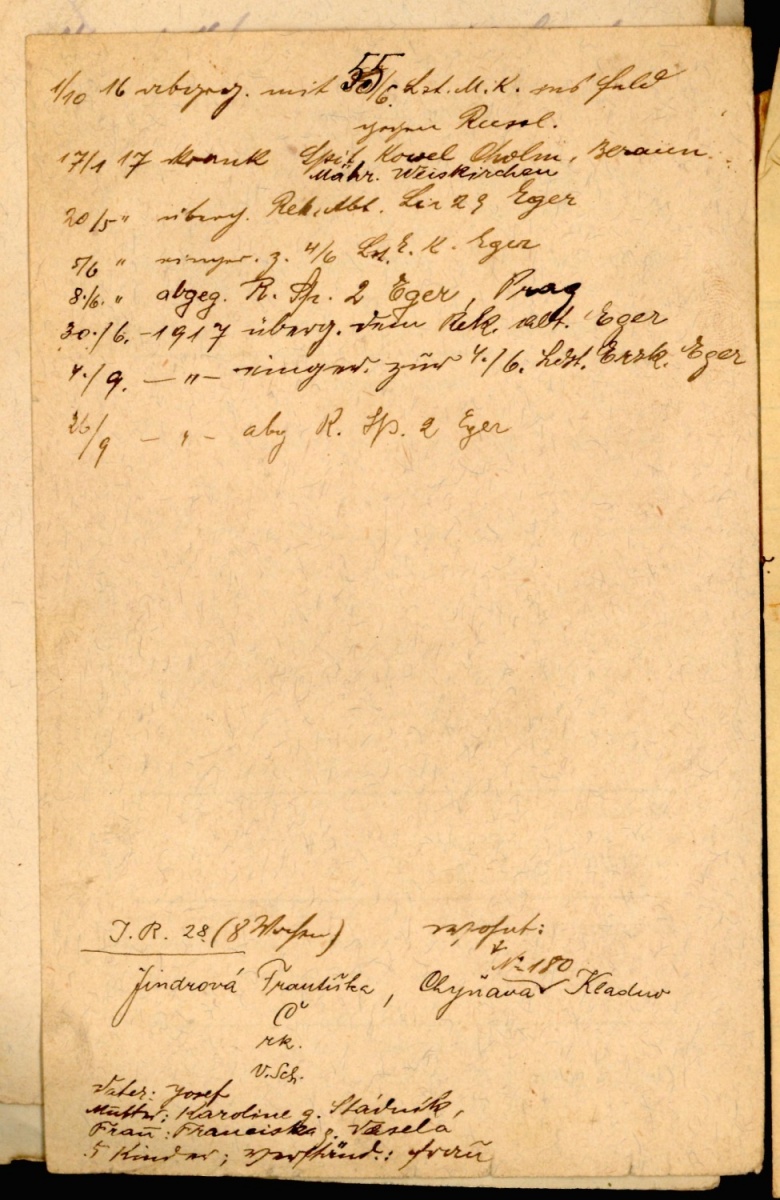 1/10 16 abgeg. mit 55/6. Lst. M. K. ins Feld
gegen Russl.
17/1 17 krank Spit. Kowel Cholm, Beraun
Mähr. Weiskirchen
20/5 " überg. Rek. Abt. Lir 29 Eger
5/6 " einger. z. 4/6 Lst. E. K. Eger
8./6. " abgeg. R. Sp. 2 Eger, Prag
30./6. - 1917 überg. dem Rek. abt. Eger
4./9. — " — einger. zur 4./6. Ldst. Ersk. Eger
26/9 — " — abg R. Sp. 2 Eger
I. R. 28. (8 Wochen) wohnt:
N- 180
Jindrová Františka, Chyňava Kladno
Č
rk.
v. Sch.
Vater: Josef
Mutter: Karoline g. Stádník,
Frau: Franciska g. Vesela
5 Kinder; verständ.: Frau